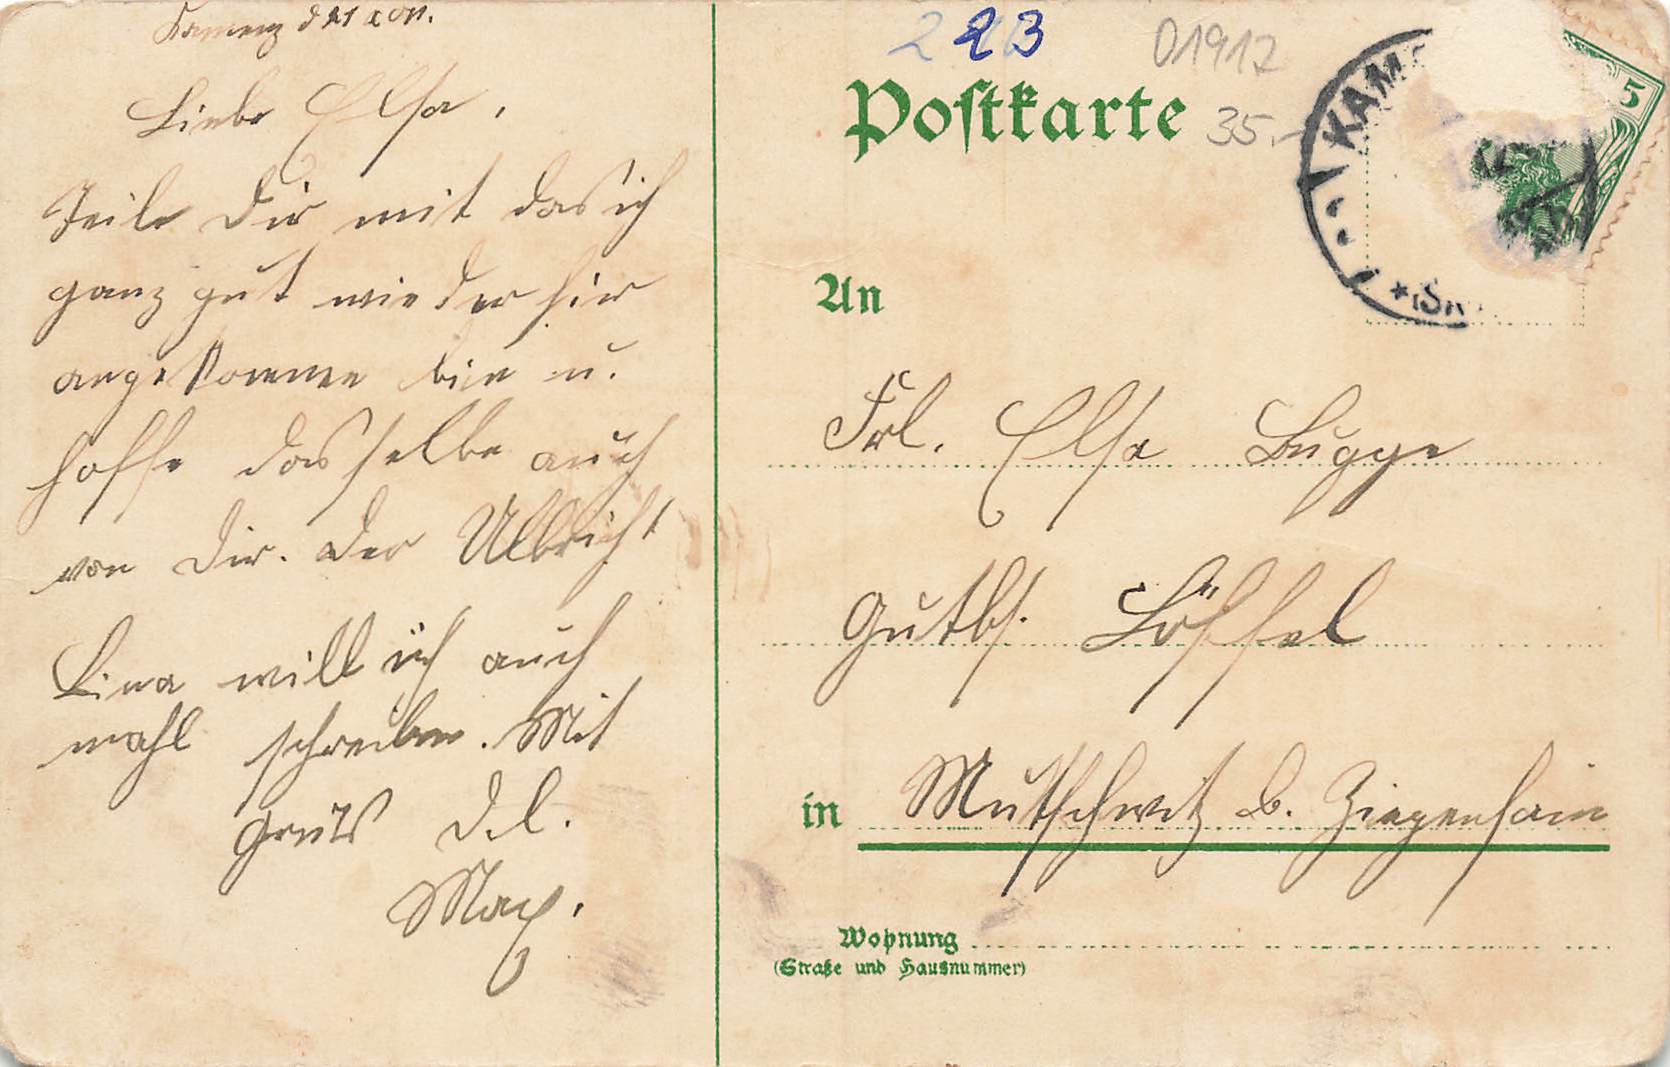 Kamenz d
Liebe Elsa,
Teile Dir mit das ich
ganz gut wieder hir
angekommen bin u.
hoffe dasselbe auch
von Dir. Der Ullricht
Lina will ich auch
mahl schreiben. Mit
Gruß D. l.
Max.
2 223
01917
Postkarte
35.-
KAM
5
An
Frl. Elsa Bugge
Gutbs. Löffel
in Mutschwitz b. Ziegenhain
Wohnung
(Straße und Hausnummer)